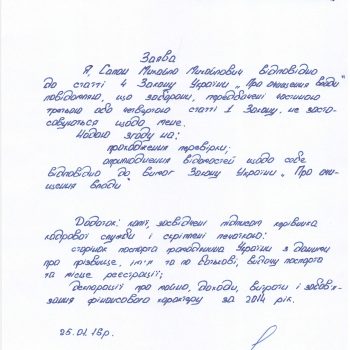 Заява
Я, Сапон Михайло Михайлович відповідно
до статті 4 Закону України „Про очищення влади"
повідомляю, що заборони, передбачені частиною
третьою або четвертою статті 1 Закону, не засто-
совуються щодо мене.
Надаю згоду на:
проходження перевірки;
оприлюднення відомостей щодо себе
відповідно до вимог Закону України „Про очи-
щення влади".
Додаток: копії, засвідчені підписом керівника
кадрової служби і скріплені печаткою:
сторінок паспорта громадянина України з даними
про прізвище, ім'я та по батькові, видачу паспорта
та місце реєстрації;
декларації про майно, доходи, витрати і зобов'я-
зання фінансового характеру за 2014 рік.
25.01.16р.